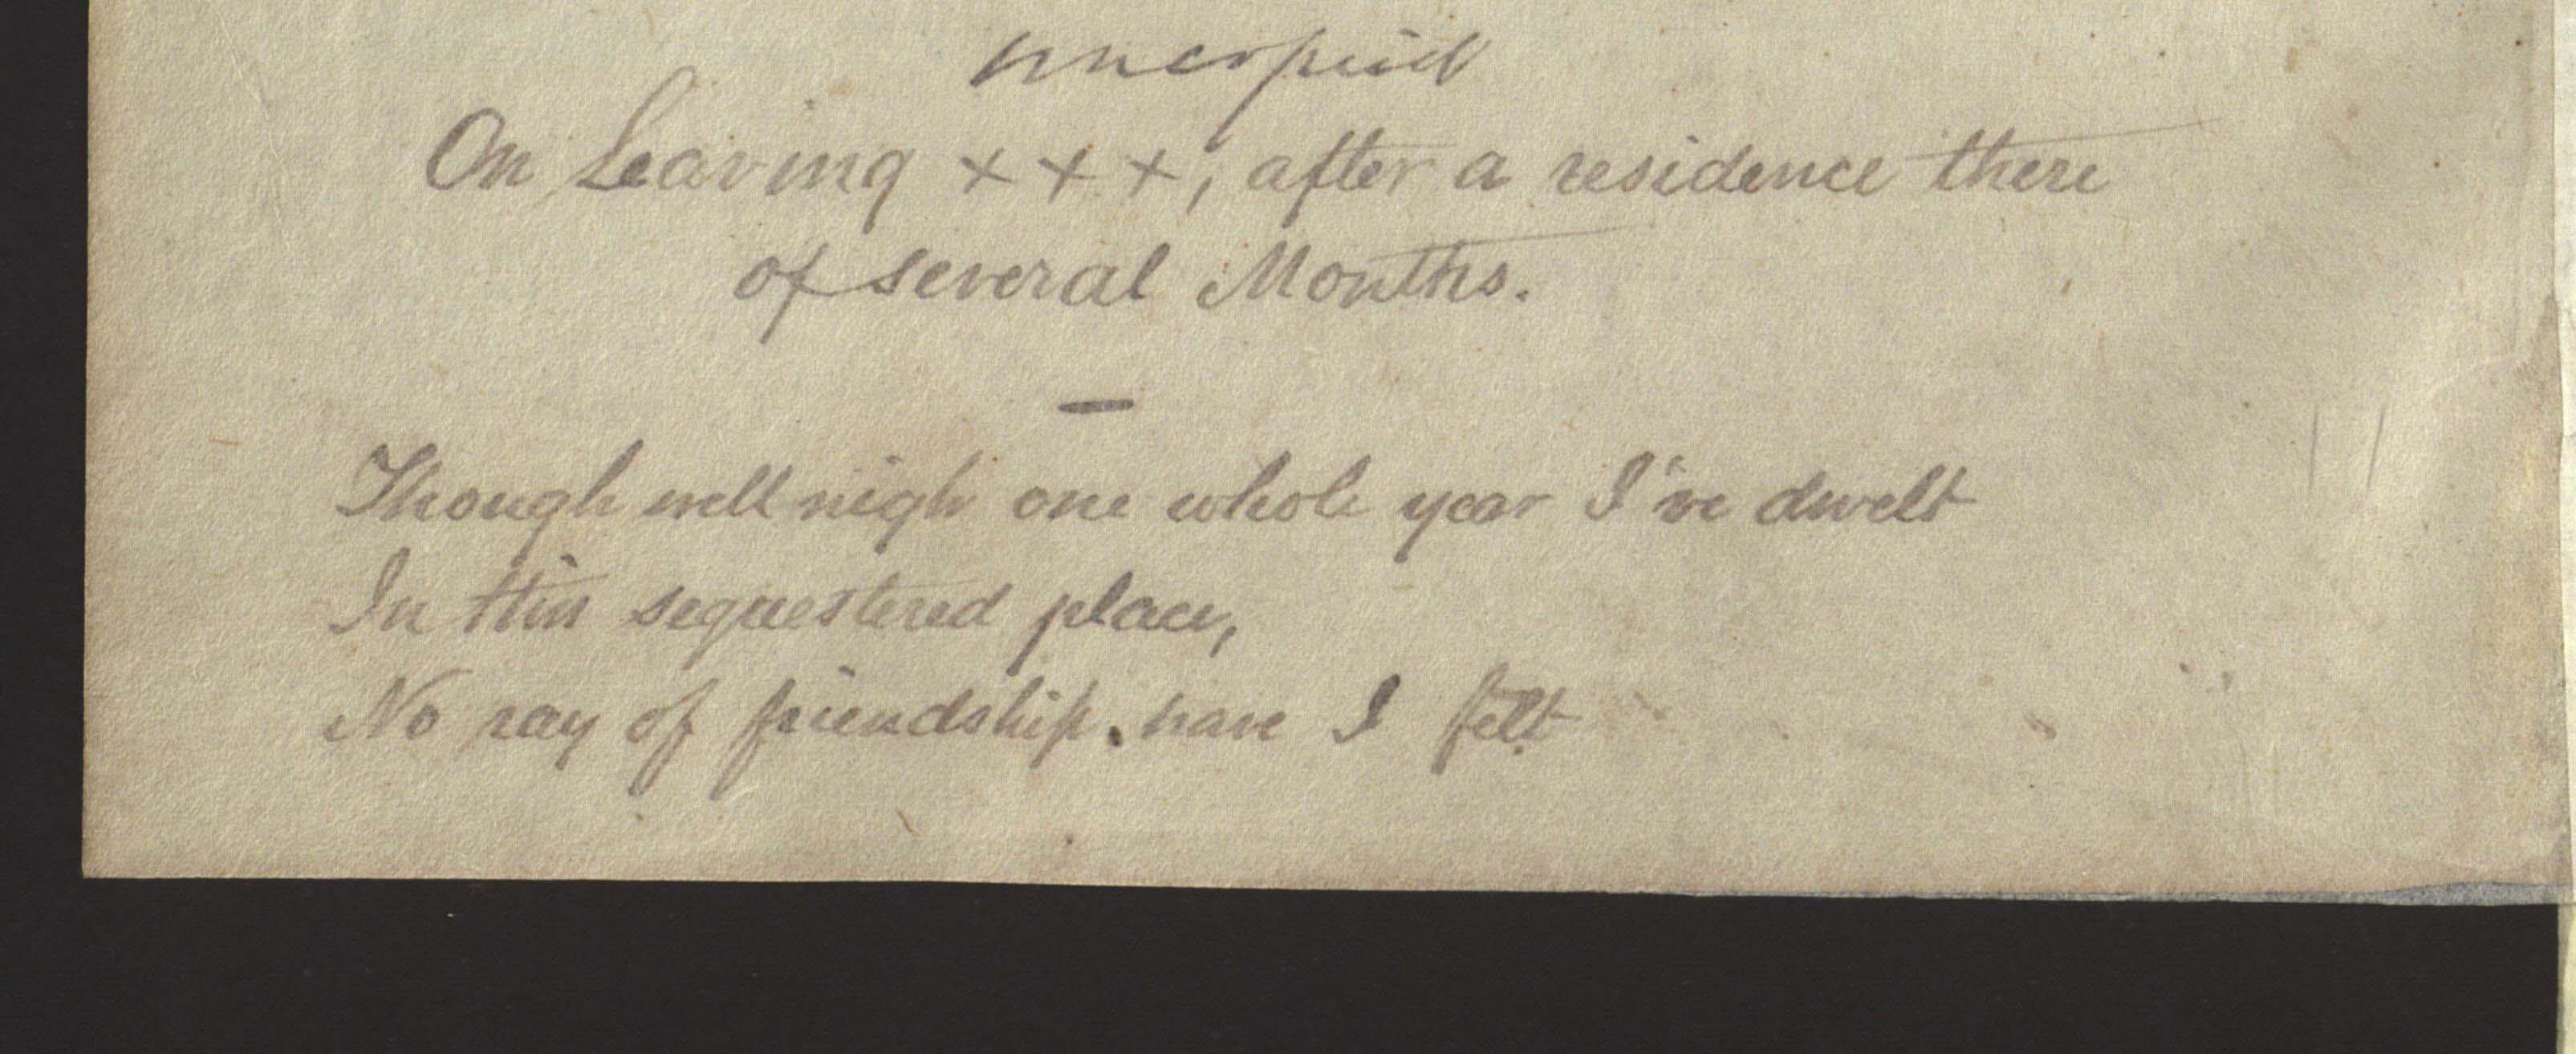 uncopied
On Leaving + + +, after a residence there
of several Months.
—
Though well nigh one whole year I've dwelt
In this sequestered place,
No ray of friendship. have I felt